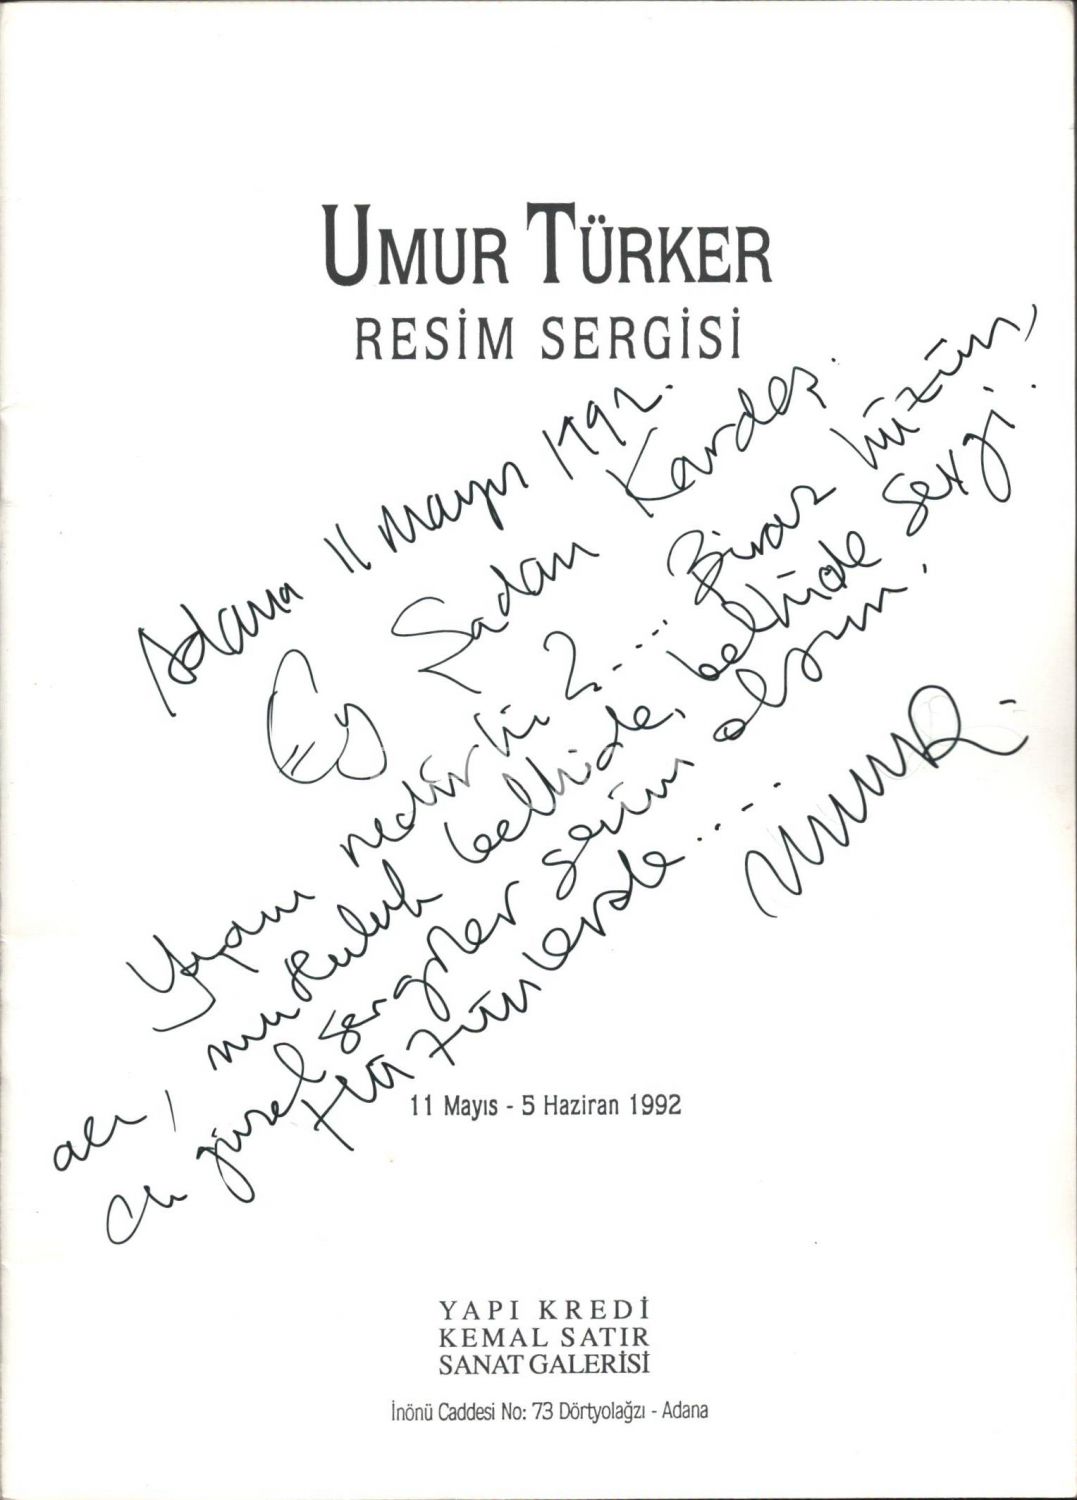 UMUR TÜRKER
RESİM SERGİSİ
Adana 11 Mayıs 1992.
Ey Şadan Kardeş.
Yaşam nedir ki ?..... Biraz hüzün,
acı, mutluluk belkide, belkide sevgi!
en güzel sevgiler senin olsun!
Hüzünlerde.....
UMUR
11 Mayıs - 5 Haziran 1992
YAPI KREDİ
KEMAL SATIR
SANAT GALERİSİ
İnönü Caddesi No: 73 Dörtyolağzı - Adana